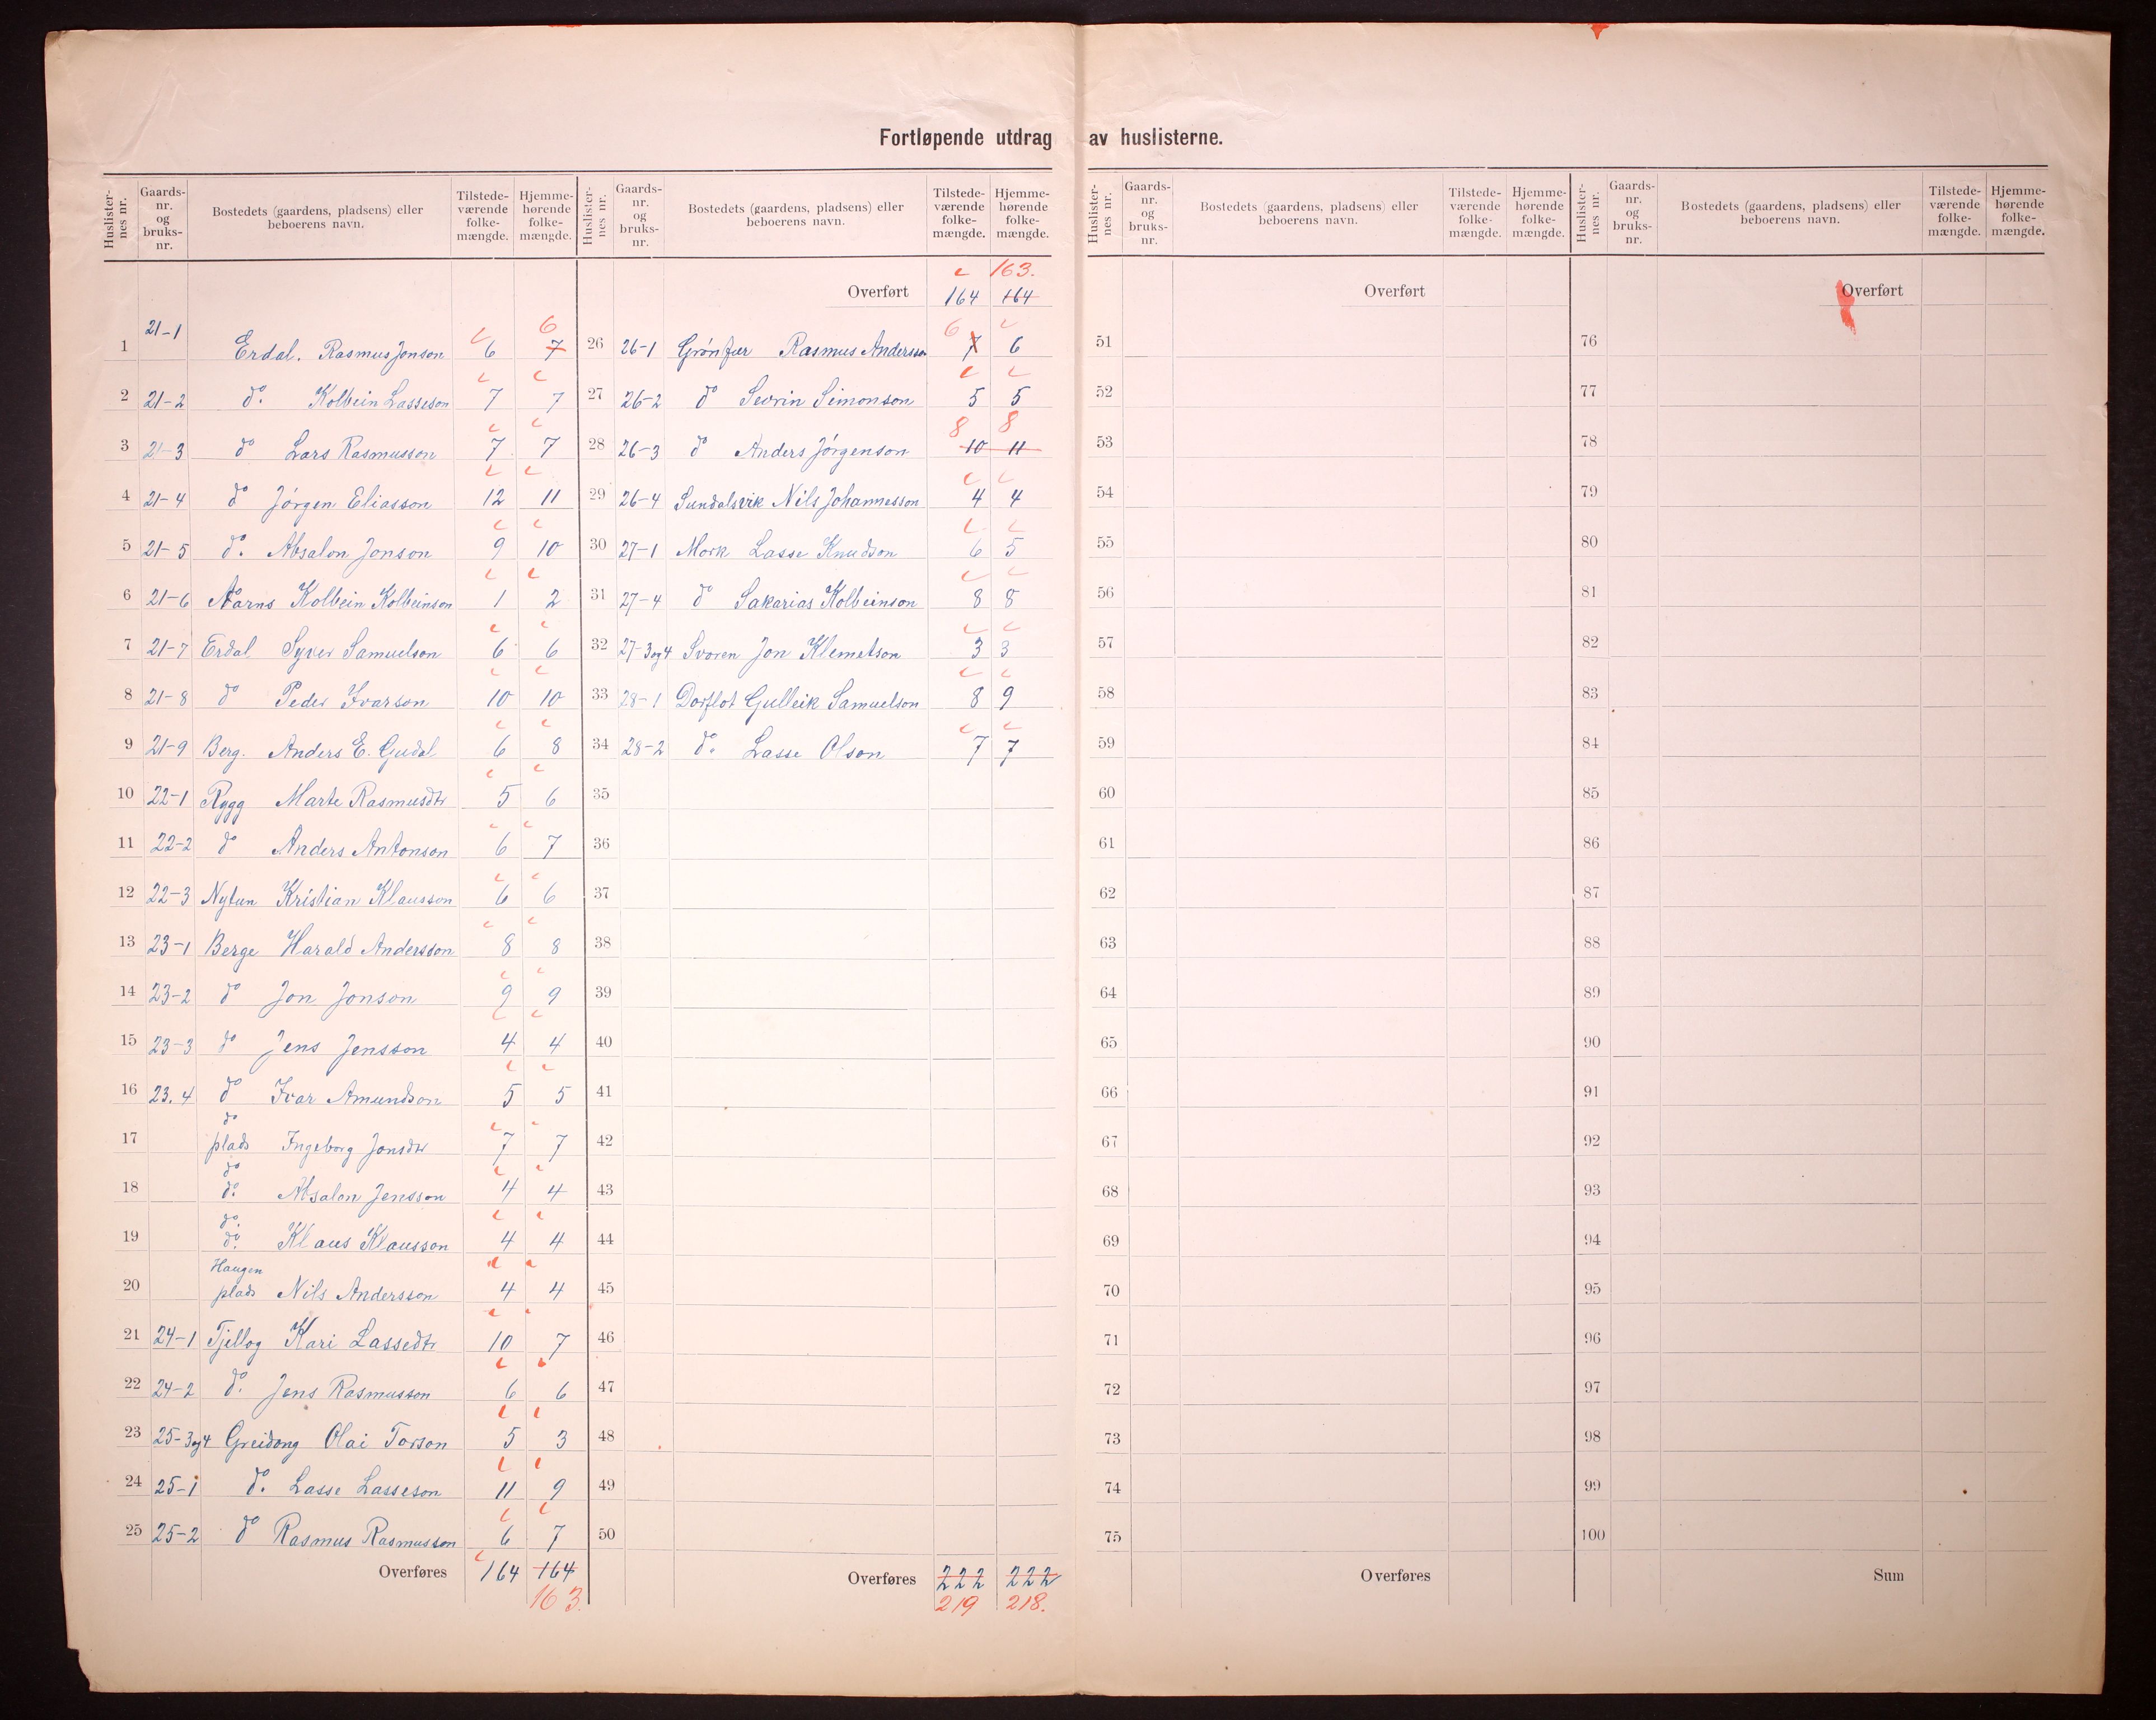 Fortløpende utdrag av huslisterne.
Huslisternes nr. Gaards-nr. og bruks-nr. Bostedets (gaardens, pladsens) eller beboerens navn. Tilstede-værende folke-mængde. Hjemme-hørende folke-mængde.
1 21-1 Erdal. Rasmus Jonson 6 7 6
2 21-2 do. Kolbein Lasseson 7 7
3 21-3 do Lars Rasmusson 7 7
4 21-4 do Jørgen Eliasson 12 11
5 21-5 do. Absalon Jonson 9 10
6 21-6 Aarnes Kolbein Kolbeinson 1 2
7 21-7 Erdal Syver Samuelson 6 6
8 21-8 do Peder Ivarson 10 10
9 21-9 Berg. Anders E. Gudal 6 8
10 22-1 Rygg Marte Rasmusdtr 5 6
11 22-2 do Anders Antonson 6 7
12 22-3 Nytun Kristian Klausson 6 6
13 23-1 Berge Harald Andersson 8 8
14 23-2 do Jon Jonson 9 9
15 23-3 do Jens Jensson 4 4
16 23.4 do Ivar Amundson 5 5
17 do plads Ingeborg Jonsdtr 7 7
18 do do. Absalon Jensson 4 4
19 do. do. Klaus Klausson 4 4
20 Haugen plads Nils Andersson 4 4
21 24-1 Tjellog Kari Lassedtr 10 7
22 24-2 do. Jens Rasmusson 6 6
23 25-3og4 Greidong Olai Torson 5 3
24 25-1 do. Lasse Lasseson 11 9
25 25-2 do Rasmus Rasmusson 6 7
Overføres 164 164
163.
Huslisternes nr. Gaards-nr. og bruks-nr. Bostedets (gaardens, pladsens) eller beboerens navn. Tilstede-værende folke-mængde. Hjemme-hørende folke-mængde.
163.
Overført 164 164
26 26-1 Rasmus Andersson 7 6 6
27 26-2 do Sevrin Simonson 5 5
28 26-3 do Anders Jørgenson 10 11 8 8
29 26-4 Sundalsvik Nils Johannesson 4 4
30 27-1 Mork Lasse Knudson 6 5
31 27-4 do Sakarias Kolbeinson 8 8
32 27-3og4 Svoren Jon Klemetson 3 3
33 28-1 Dorflot Gulleik Samuelson 8 9
34 28-2 do. Lasse Olson 7 7
35
36
37
38
39
40
41
42
43
44
45
46
47
48
49
50
Overføres 222 222
219 218.
Huslisternes nr. Gaards-nr. og bruks-nr. Bostedets (gaardens, pladsens) eller beboerens navn. Tilstede-værende folke-mængde. Hjemme-hørende folke-mængde.
Overført
51
52
53
54
55
56
57
58
59
60
61
62
63
64
65
66
67
68
69
70
71
72
73
74
75
Overføres
Huslisternes nr. Gaards-nr. og bruks-nr. Bostedets (gaardens, pladsens) eller beboerens navn. Tilstede-værende folke-mængde. Hjemme-hørende folke-mængde.
Overført
76
77
78
79
80
81
82
83
84
85
86
87
88
89
90
91
92
93
94
95
96
97
98
99
100
Sum